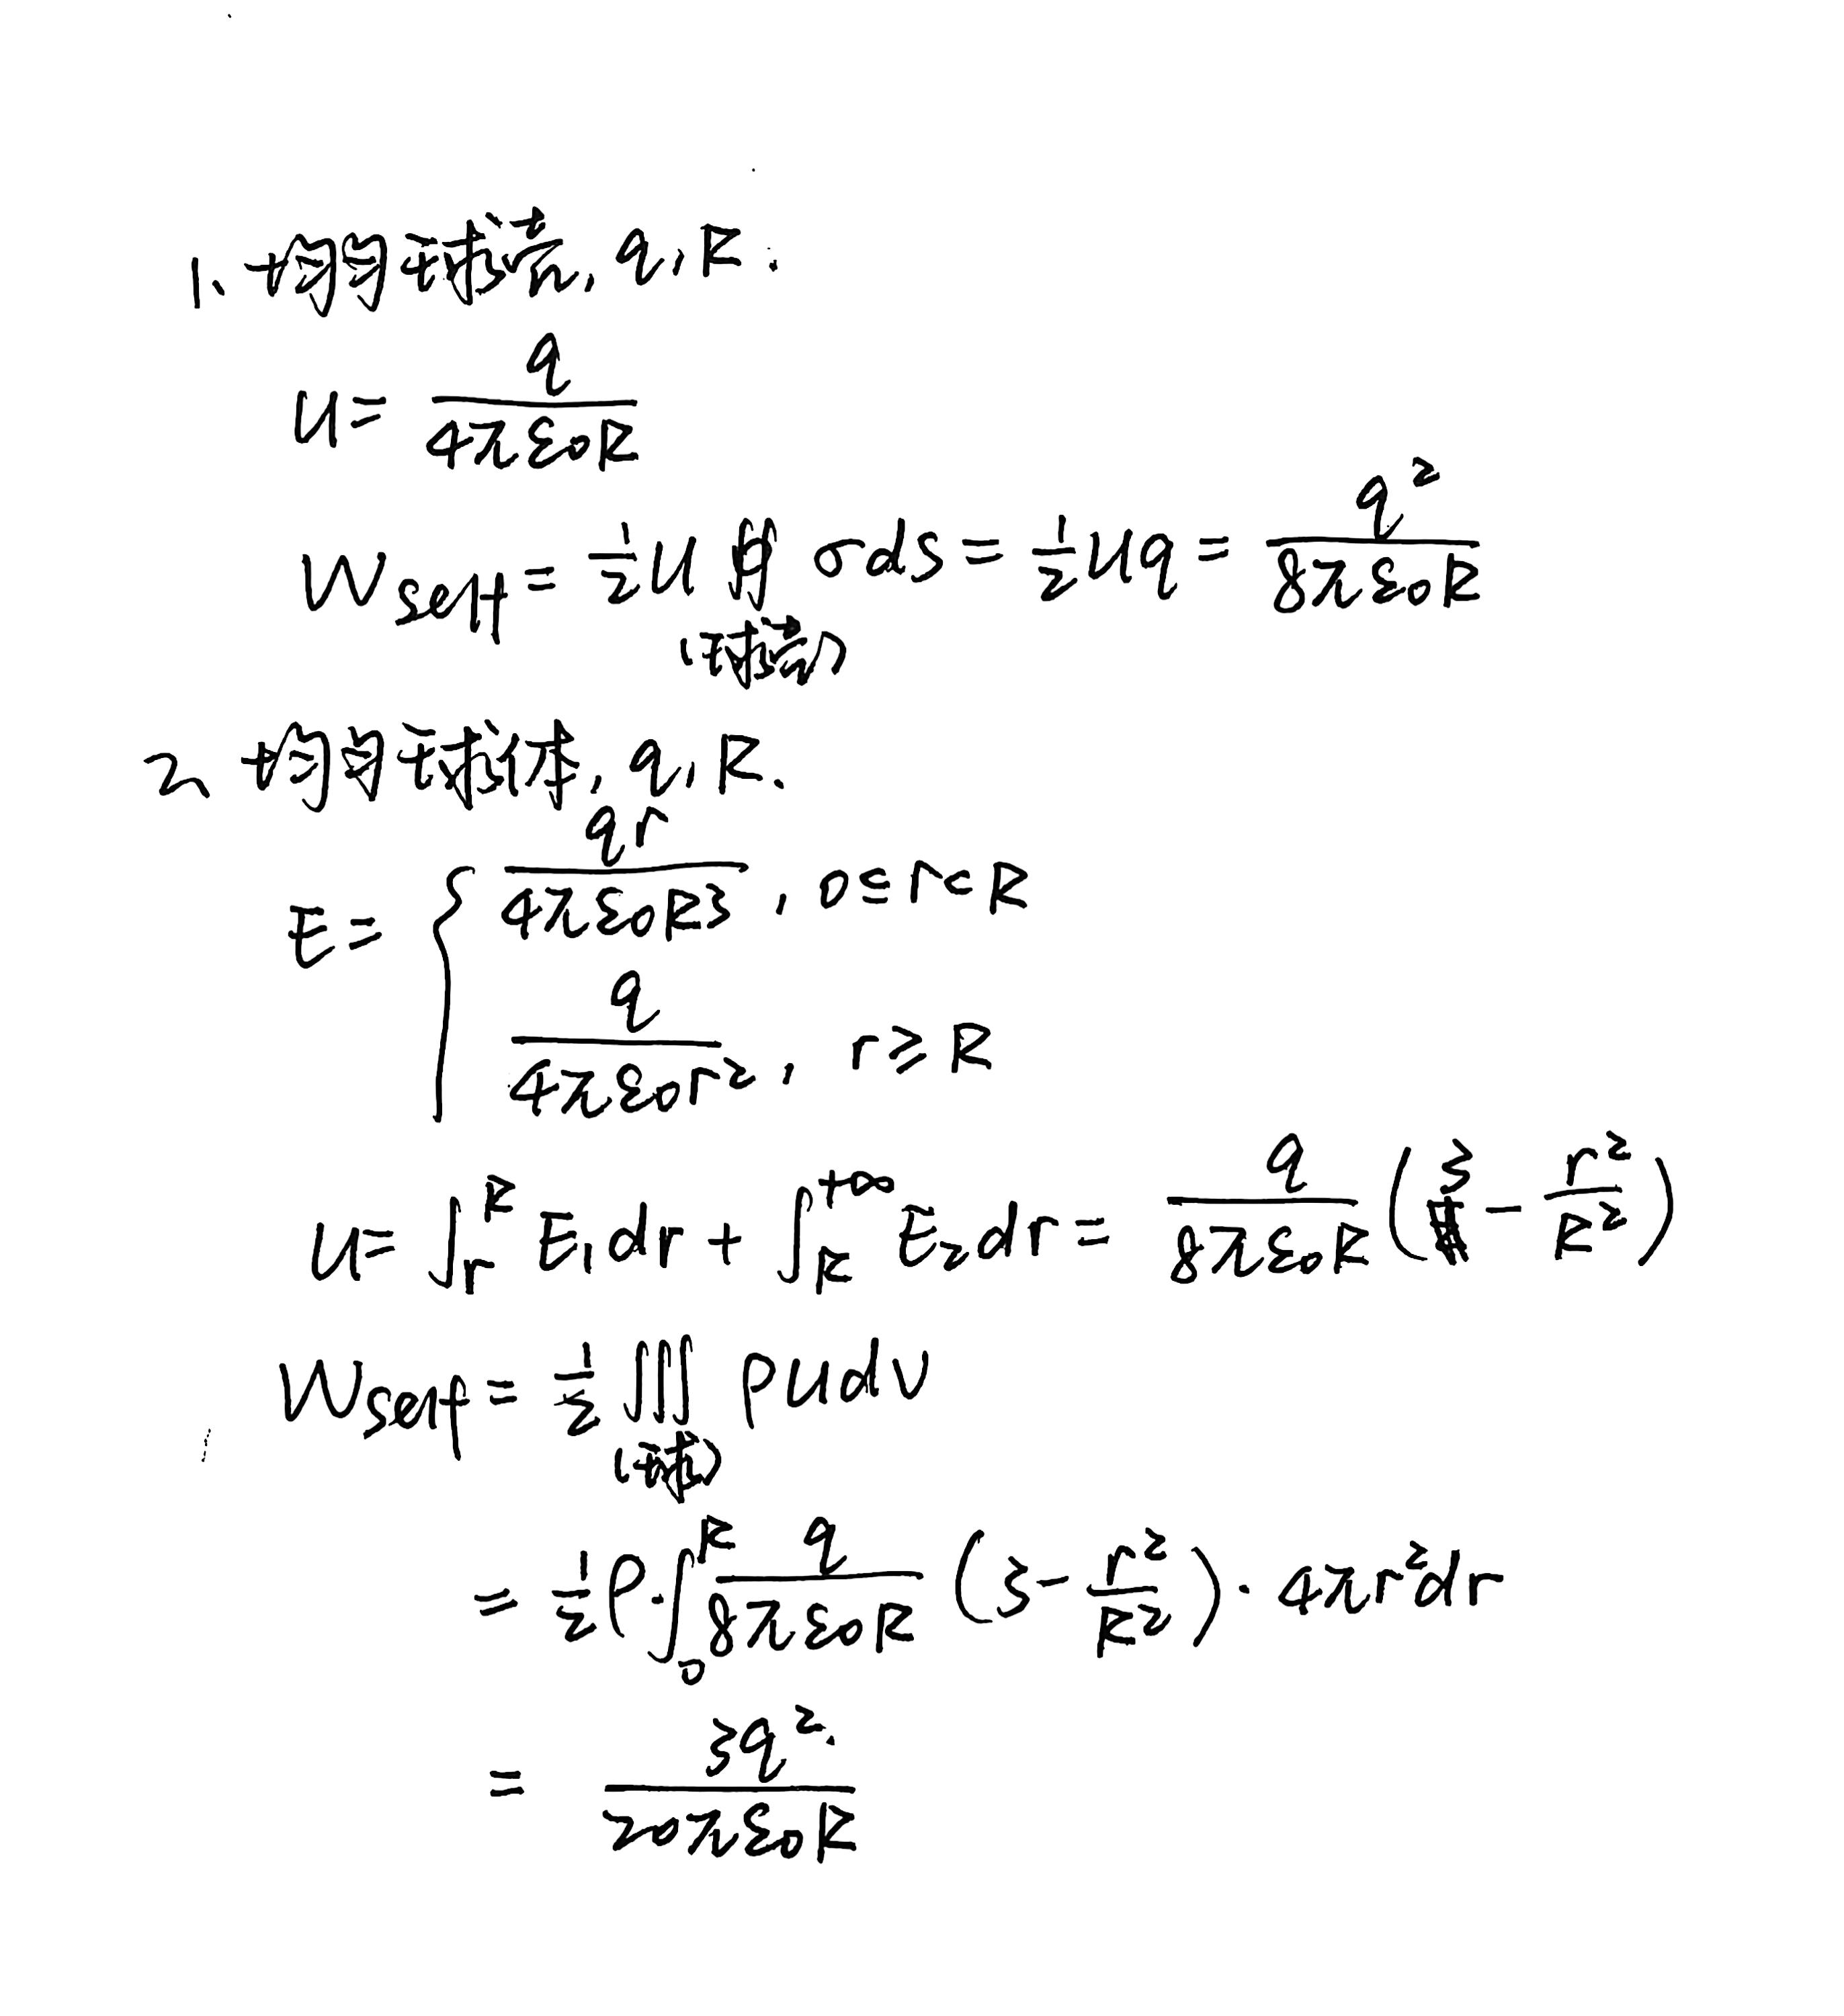 1. 均匀球壳, q, R.
U = \frac{q}{4πε₀R}
W_{self} = \frac{1}{2} U ∯_{(球壳)} σds = \frac{1}{2} Uq = \frac{q²}{8πε₀R}
2. 均匀球体, q, R.
E = { \frac{qr}{4πε₀R³}, 0 ≤ r < R
\frac{q}{4πε₀r²}, r ≥ R
U = ∫_r^R E₁dr + ∫_R^{+∞} E₂dr = \frac{q}{8πε₀R} (3 - \frac{r²}{R²})
W_{self} = \frac{1}{2} ∭_{(球)} ρudv
= \frac{1}{2} ρ · ∫_0^R \frac{q}{8πε₀R} (3 - \frac{r²}{R²}) · 4πr²dr
= \frac{3q²}{20πε₀R}